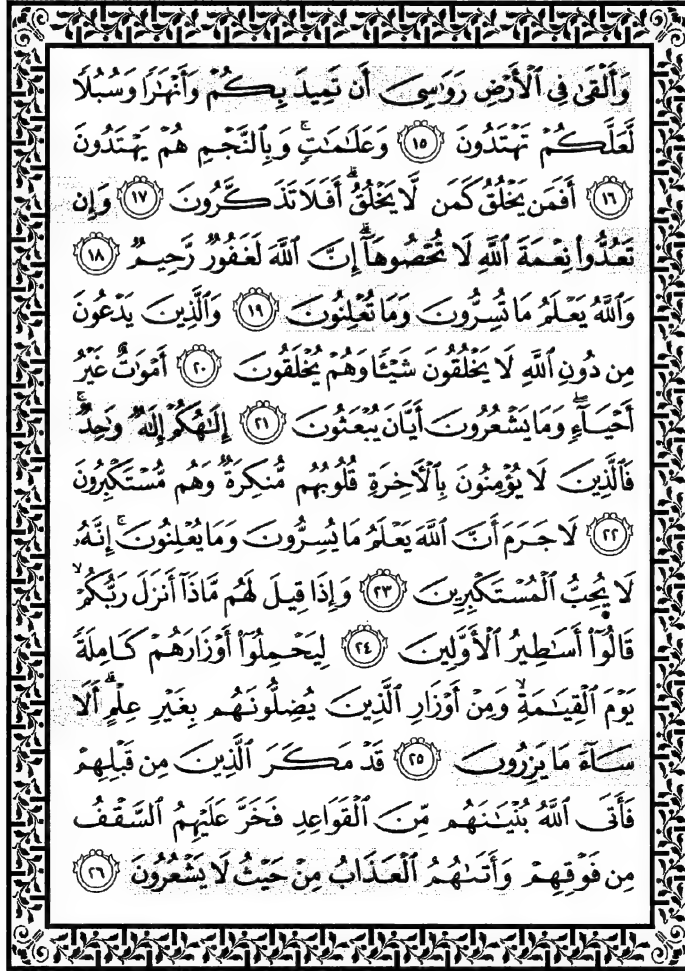 وَأَلْقَىٰ فِى ٱلْأَرْضِ رَوَٰسِىَ أَن تَمِيدَ بِكُمْ وَأَنْهَـٰرًا وَسُبُلًا
لَّعَلَّكُمْ تَهْتَدُونَ ١٥ وَعَلَـٰمَـٰتٍ ۚ وَبِٱلنَّجْمِ هُمْ يَهْتَدُونَ
١٦ أَفَمَن يَخْلُقُ كَمَن لَّا يَخْلُقُ ۗ أَفَلَا تَذَكَّرُونَ ١٧ وَإِن
تَعُدُّوا۟ نِعْمَةَ ٱللَّهِ لَا تُحْصُوهَآ ۗ إِنَّ ٱللَّهَ لَغَفُورٌ رَّحِيمٌ ١٨
وَٱللَّهُ يَعْلَمُ مَا تُسِرُّونَ وَمَا تُعْلِنُونَ ١٩ وَٱلَّذِينَ يَدْعُونَ
مِن دُونِ ٱللَّهِ لَا يَخْلُقُونَ شَيْـًٔا وَهُمْ يُخْلَقُونَ ٢٠ أَمْوَٰتٌ غَيْرُ
أَحْيَآءٍ ۖ وَمَا يَشْعُرُونَ أَيَّانَ يُبْعَثُونَ ٢١ إِلَـٰهُكُمْ إِلَـٰهٌ وَٰحِدٌ ۚ
فَٱلَّذِينَ لَا يُؤْمِنُونَ بِٱلْـَٔاخِرَةِ قُلُوبُهُم مُّنكِرَةٌ وَهُم مُّسْتَكْبِرُونَ
٢٢ لَا جَرَمَ أَنَّ ٱللَّهَ يَعْلَمُ مَا يُسِرُّونَ وَمَا يُعْلِنُونَ ۚ إِنَّهُۥ
لَا يُحِبُّ ٱلْمُسْتَكْبِرِينَ ٢٣ وَإِذَا قِيلَ لَهُم مَّاذَآ أَنزَلَ رَبُّكُمْ ۙ
قَالُوٓا۟ أَسَـٰطِيرُ ٱلْأَوَّلِينَ ٢٤ لِيَحْمِلُوٓا۟ أَوْزَارَهُمْ كَامِلَةً
يَوْمَ ٱلْقِيَـٰمَةِ ۙ وَمِنْ أَوْزَارِ ٱلَّذِينَ يُضِلُّونَهُم بِغَيْرِ عِلْمٍ ۗ أَلَا
سَآءَ مَا يَزِرُونَ ٢٥ قَدْ مَكَرَ ٱلَّذِينَ مِن قَبْلِهِمْ
فَأَتَى ٱللَّهُ بُنْيَـٰنَهُم مِّنَ ٱلْقَوَاعِدِ فَخَرَّ عَلَيْهِمُ ٱلسَّقْفُ
مِن فَوْقِهِمْ وَأَتَىٰهُمُ ٱلْعَذَابُ مِنْ حَيْثُ لَا يَشْعُرُونَ ٢٦